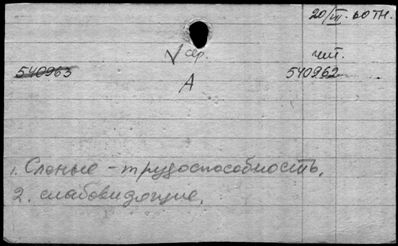 20/VII. 60 ТН.
V ср. чит.
540963 540962
А
1. Слепые - трудоспособность,
2. слабовидящие.